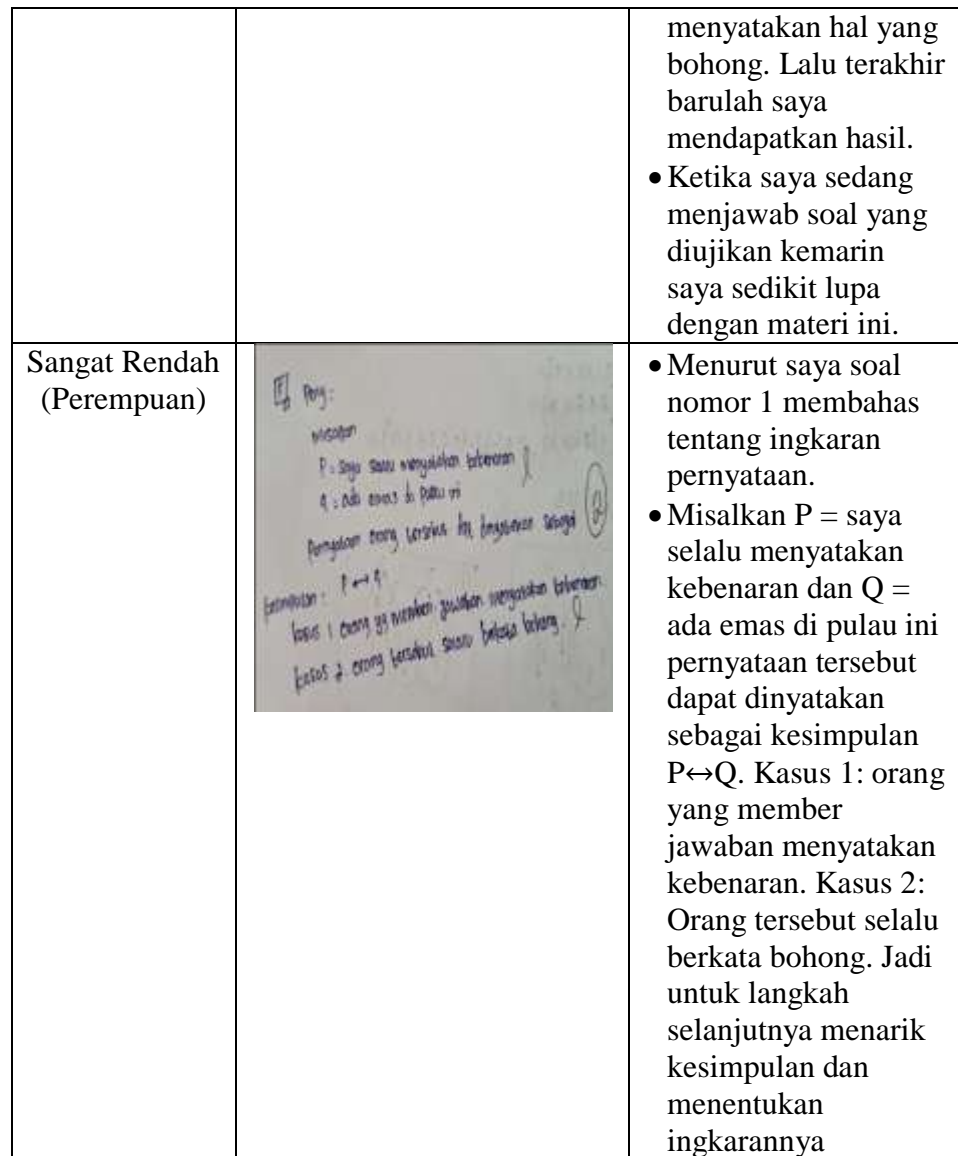 menyatakan hal yang
bohong. Lalu terakhir
barulah saya
mendapatkan hasil.
• Ketika saya sedang
menjawab soal yang
diujikan kemarin
saya sedikit lupa
dengan materi ini.
Sangat Rendah
(Perempuan)
1 Peny:
misalkan
P : saya selalu menyatakan kebenaran
q : ada emas di pulau ini
Pernyataan orang tersebut dinyatakan sebagai
2
kesimpulan : P ↔ q
kasus 1 orang yg memberi jawaban menyatakan kebenaran
kasus 2 orang tersebut selalu berkata bohong.
• Menurut saya soal
nomor 1 membahas
tentang ingkaran
pernyataan.
• Misalkan P = saya
selalu menyatakan
kebenaran dan Q =
ada emas di pulau ini
pernyataan tersebut
dapat dinyatakan
sebagai kesimpulan
P↔Q. Kasus 1: orang
yang member
jawaban menyatakan
kebenaran. Kasus 2:
Orang tersebut selalu
berkata bohong. Jadi
untuk langkah
selanjutnya menarik
kesimpulan dan
menentukan
ingkarannya